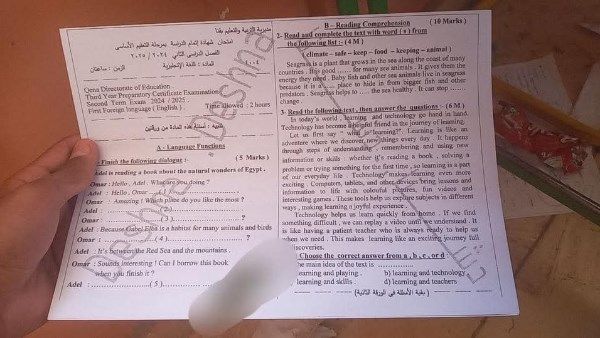 مديرية التربية والتعليم بقنا
امتحان شهادة إتمام الدراسة بمرحلة التعليم الأساسى
الفصل الدراسى الثانى ٢٠٢٤ / ٢٠٢٥
المادة : اللغة الإنجليزية الزمن : ساعتان
Qena Directorate of Education
Third Year Preparatory Certificate Examination
Second Term Exam 2024 / 2025
First Foreign language ( English ) Time allowed : 2 hours
تنبيه : أسئلة هذه المادة من ورقتين
A - Language Functions
Finish the following dialogue :- ( 5 Marks )
Adel is reading a book about the natural wonders of Egypt .
Omar : Hello , Adel . What are you doing ?
Adel : Hello , Omar . ( 1 )
Omar : Amazing ! Which place do you like the most ?
Adel : ( 2 )
Omar : ( 3 ) ?
Adel : Because Gabel Elba is a habitat for many animals and birds
Omar : ( 4 ) ?
Adel : It's between the Red Sea and the mountains .
Omar : Sounds interesting ! Can I borrow this book
when you finish it ?
Adel : ( 5 )
B – Reading Comprehension ( 10 Marks )
2- Read and complete the text with word ( s ) from
the following list :- ( 4 M )
( climate – safe – keep – food – keeping – animal )
Seagrass is a plant that grows in the sea along the coast of many
countries . It is good ...... for many sea animals . It gives them the
energy they need . Baby fish and other sea animals live in seagrass
because it is a ...... place to hide in from bigger fish and other
predators . Seagrass helps to ..... the sea healthy . It can stop ......
change .
3- Read the following text , then answer the questions :- ( 6 M )
In today's world , learning and technology go hand in hand.
Technology has become a helpful friend in the journey of learning.
Let us first say " what is learning?" Learning is like an
adventure where we discover new things every day . It happens
through steps of understanding , remembering and using new
information or skills , whether it's reading a book , solving a
problem or trying something for the first time , so learning is a part
of our everyday life . Technology makes learning even more
exciting . Computers, tablets, and other devices bring lessons and
information to life with colorful pictures, fun videos and
interesting games . These tools help us explore subjects in different
ways , making learning a joyful experience .
Technology helps us learn quickly from home . If we find
something difficult , we can replay a video until we understand . It
is like having a patient teacher who is always ready to help us
when we need . This makes learning like an exciting journey full
discoveries.
Choose the correct answer from a , b , c , or d
he main idea of the text is .........
learning and playing . b) learning and technology
learning and skills . d) learning and teachers
( بقية الأسئلة فى الورقة الثانية )